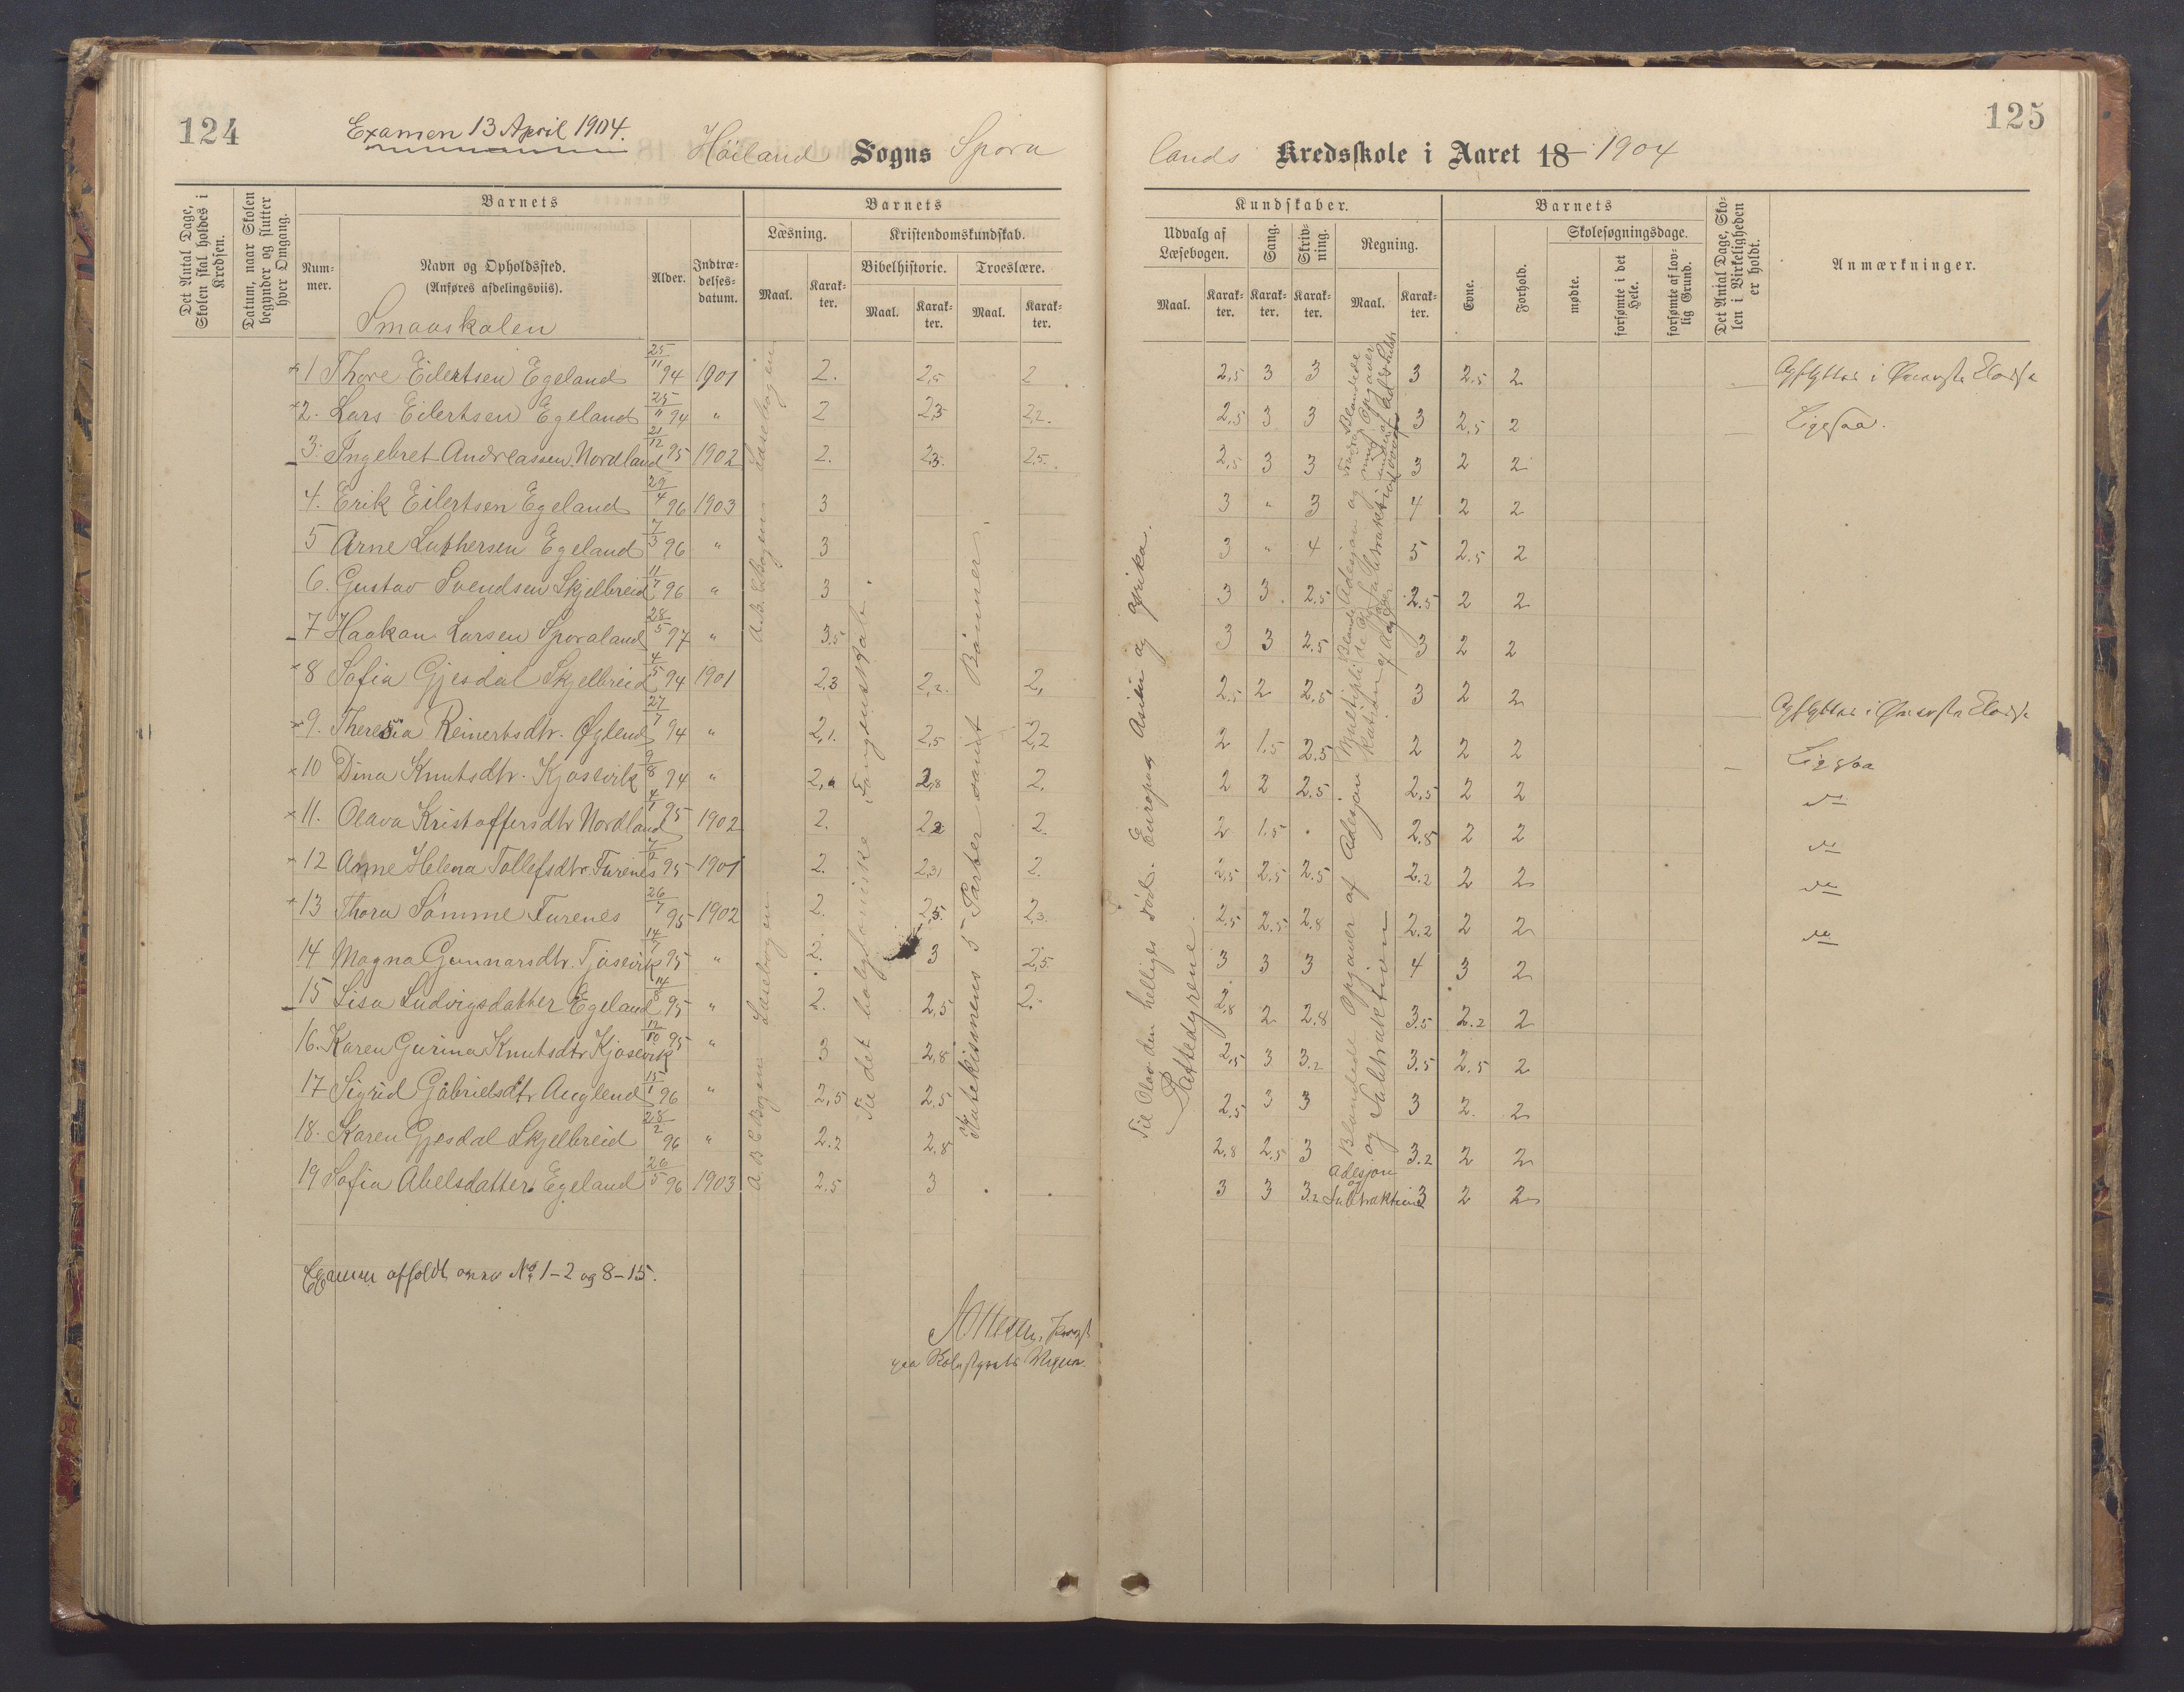 124
Examen 13 April 1904.
Höiland Sogns Spora
Det Antal Dage, Skolen skal holdes i Kredsen.
Datum, naar Skolen begynder og slutter hver Omgang.
Barnets
Num-mer.
Navn og Opholdssted.
(Anføres afdelingsviis).
Smaaskolen
Alder.
Indtræ-delses-datum.
Barnets
Læsning.
Kristendomskundskab.
Bibelhistorie. Troeslære.
Maal. Karak-ter. Maal. Karak-ter. Maal. Karak-ter.
1 Thore Eilertsen Egeland 25/11 94 1901 2. 2,5 2
2. Lars Eilertsen Egeland 25/11 94 " 2 2,3 2,2.
3. Ingebret Andreassen Nordland 21/12 95 1902 2. 2,3. 2,5.
4. Erik Eilertsen Egeland 29/4 96 1903 3
5 Arne Luthersen Egeland 7/3 96 " 3
6. Gustav Svendsen Skjelbreid 11/7 96 " 3
7 Haakon Larsen Sporaland 28/5 97 " 3.5
8 Sofia Gjesdal Skjelbreid 4/5 94 1901 2,3 2,2. 2,
9. Theresia Reinertsdtr. Øglend 27/7 94 " 2,1. 2,5 2,2
10 Dina Knutsdtr. Kjosevik 9/8 94 " 2,8 2.
11. Olava Kristoffersdtr Nordland 4/1 95 1902 2. 2,2 2.
12 Anne Helena Tollefsdtr Furenes 95 1901 2. 2,3 2.
13 Thora Sömme Furenes 26/7 95 1902 2. 2,5. 2,3.
14 Magna Gunnarsdtr. Tjosevik 14/7 95 " 2. 3 2,5.
15 Lisa Ludvigsdatter Egeland 14/8 95 " 2. 2,5 2.
16. Karen Gurina Knutsdtr Kjosevik 12/10 95 " 3 2,8
17 Sigrid Gabrielsdtr Auglend 15/1 96 " 2,5 2.5
18. Karen Gjesdal Skjelbreid 28/2 96 " 2.2 2.8
19 Sofia Abelsdatter Egeland 26/5 96 1903 2.5 3
A.B.C. Bogen Læsebogen
A. B. C. Bogen Læsebogen
Til det babyloniske Fangenskab.
Katekismens 5 Parter samt Bönner
Examen afholdt over No. 1-2 og 8-15.
125
lands Kredsskole i Aaret 18 1904
Kundskaber.
Udvalg af Læsebogen.
Sang.
Skriv-ning.
Regning.
Maal. Karak-ter. Karak-ter. Karak-ter. Maal. Karak-ter.
Barnets
Evne.
Forhold.
Skolesøgningsdage.
mødte.
forsømte i det Hele.
forsømte af lov-lig Grund.
Det Antal Dage, Sko-len i Virkeligheden er holdt.
Anmærkninger.
2,5 3 3 3 2.5 2
2,5 3 3 3 2.5 2 Ligesaa.
2,5 3 3 3 2 2
3 " 3 4 2 2
3 " 4 5 2.5 2
3 3 2.5 2.5 2 2
3 3 2.5 3 2 2
2.5 2 2.5 3 2 2
2 1.5 2.5 2 2 2 Ligesaa
2 2 2.5 2,5 2 2 do
2 1.5 2.8 2 2 do
2,5 2.5 2.5 2.2 2 2 do
2.5 2.5 2.8 2.2 2 2 do
3 3 3 4 3 2
2.8 2 2.8 3.5 2.2 2
2,5 3 3.2 3.5 2.5 2
2.5 3 3 3 2. 2
2.8 2.5 3 3.2 2 2
3 3 3.2 3 2 2
Til Olav den helliges död. Europa Asien og Afrika.
Pattedyrene.
Blandede Opgaver af Adesjon
og Subtraktion
Adesjon
og
Subtraktion